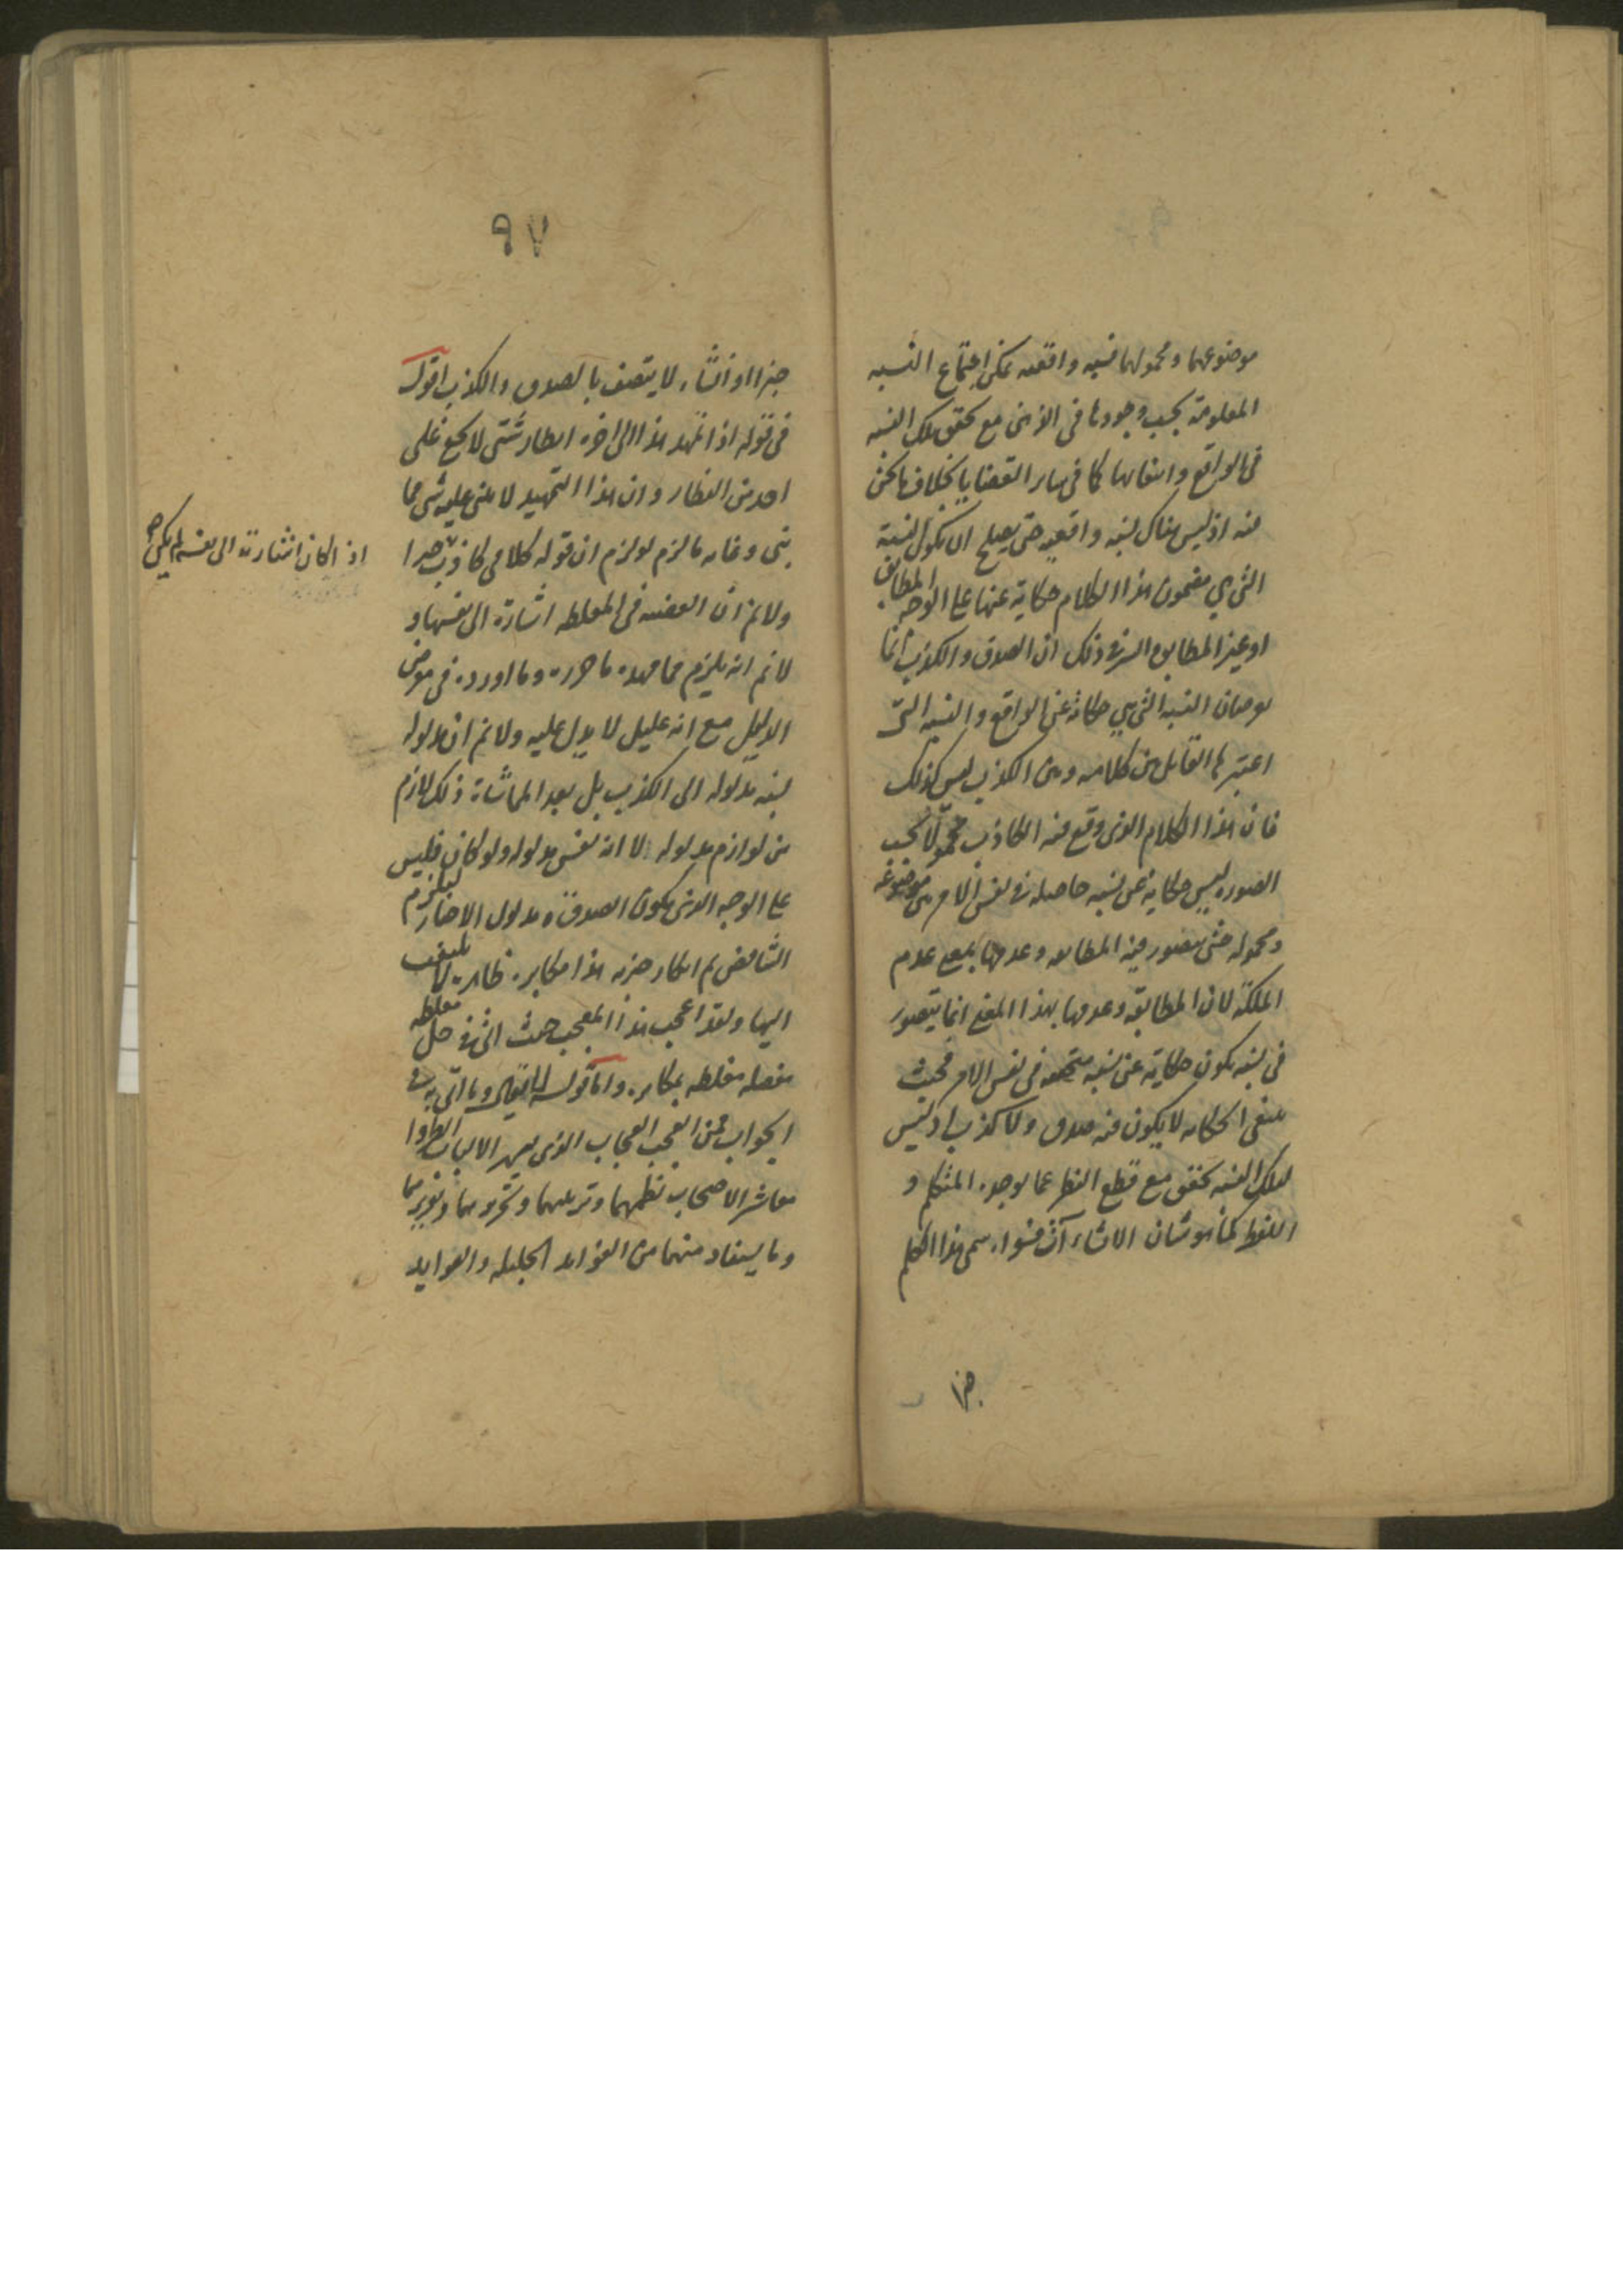 موضوعهما ومحمولهما نسبه واقعيه يمكن اجتماع النسبه
المعلومة بحسب وجودها في الذهن مع تحقق تلك النسبه
في الواقع وانتفائها كما في سائر القضايا بخلاف ما نحن
فيه اذ ليس هناك نسبه واقعيه حتى يصلح ان تكون النسبة
التي هي مضمون هذا الكلام حكاية عنها على الوجه المطابق
او غير المطابق والسر في ذلك ان الصدق والكذب انما
يوصفان النسبه التي هي حكاية عن الواقع والنسبه التي
اعتبرها القائل بين كلامه وبين الكذب ليس كذلك
فان هذا الكلام الذي وقع فيه الكاذب محمولا بحسب
الصوره ليس حكاية عن نسبه حاصله في نفس الامر بين موضوعه
ومحموله حتى يتصور فيه المطابقه وعدمها بمعنى عدم
الملكة لان المطابقة وعدمها بهذا المعنى انما يتصور
في نسبه تكون حكاية عن نسبه متحققه في نفس الامر فحيث
ينتفي الحكايه لا يكون فيه صدق ولا كذب اذ ليس
لتلك النسبه تحقق مع قطع النظر عما يوجده المتكلم و
اللفظ كما هو شان الانشاء آت فسواء سمي هذا الكلم
خبرا
٩٧
خبرا او انشاء لا يتصف بالصدق والكذب اقول
في قوله اذا تمهد هذا الى اخره انظار شتى لا تخفى على
احد من النظار وان هذا التمهيد لا يبتني عليه شي مما
بنى وغايه ما لزم لو لزم ان قوله كلامي كاذب خبرا
ولا نم ان القضيه في المغلطه اشارة الى نفسها و
لا نم انه يلزم مما مهده ما حرره وما اورده في معرض
الدليل مع انه عليل لا يدل عليه ولا نم ان مدلوله
نسبه مدلوله الى الكذب بل بعد المماشاة ذلك لازم
من لوازم مدلوله لا انه نفس مدلوله ولو كان فليس
على الوجه الذي يكون الصدق مدلول الاخبار ليلزم
التناقض ثم انكار خبريه هذا مكابره ظاهره لا يلتفت
اليها ولقد اعجب هذا المعجب حيث اتى في حل مغلطه
مفصله مغلطه بمكابره واما قوله وما اتى به في
الجواب فمن العجب العجاب الذي الالباب انظروا
معاشر الاصحاب نظمهما وترتيبهما وتحريرهما وتقريرهما
وما يستفاد منهما من الفوائد الجليله والعوايد
اذ لو كان اشارة الى نفسه لم يكن